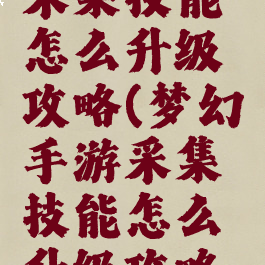 采集技能
怎么升级
攻略(梦幻
手游采集
技能怎么
升级攻略